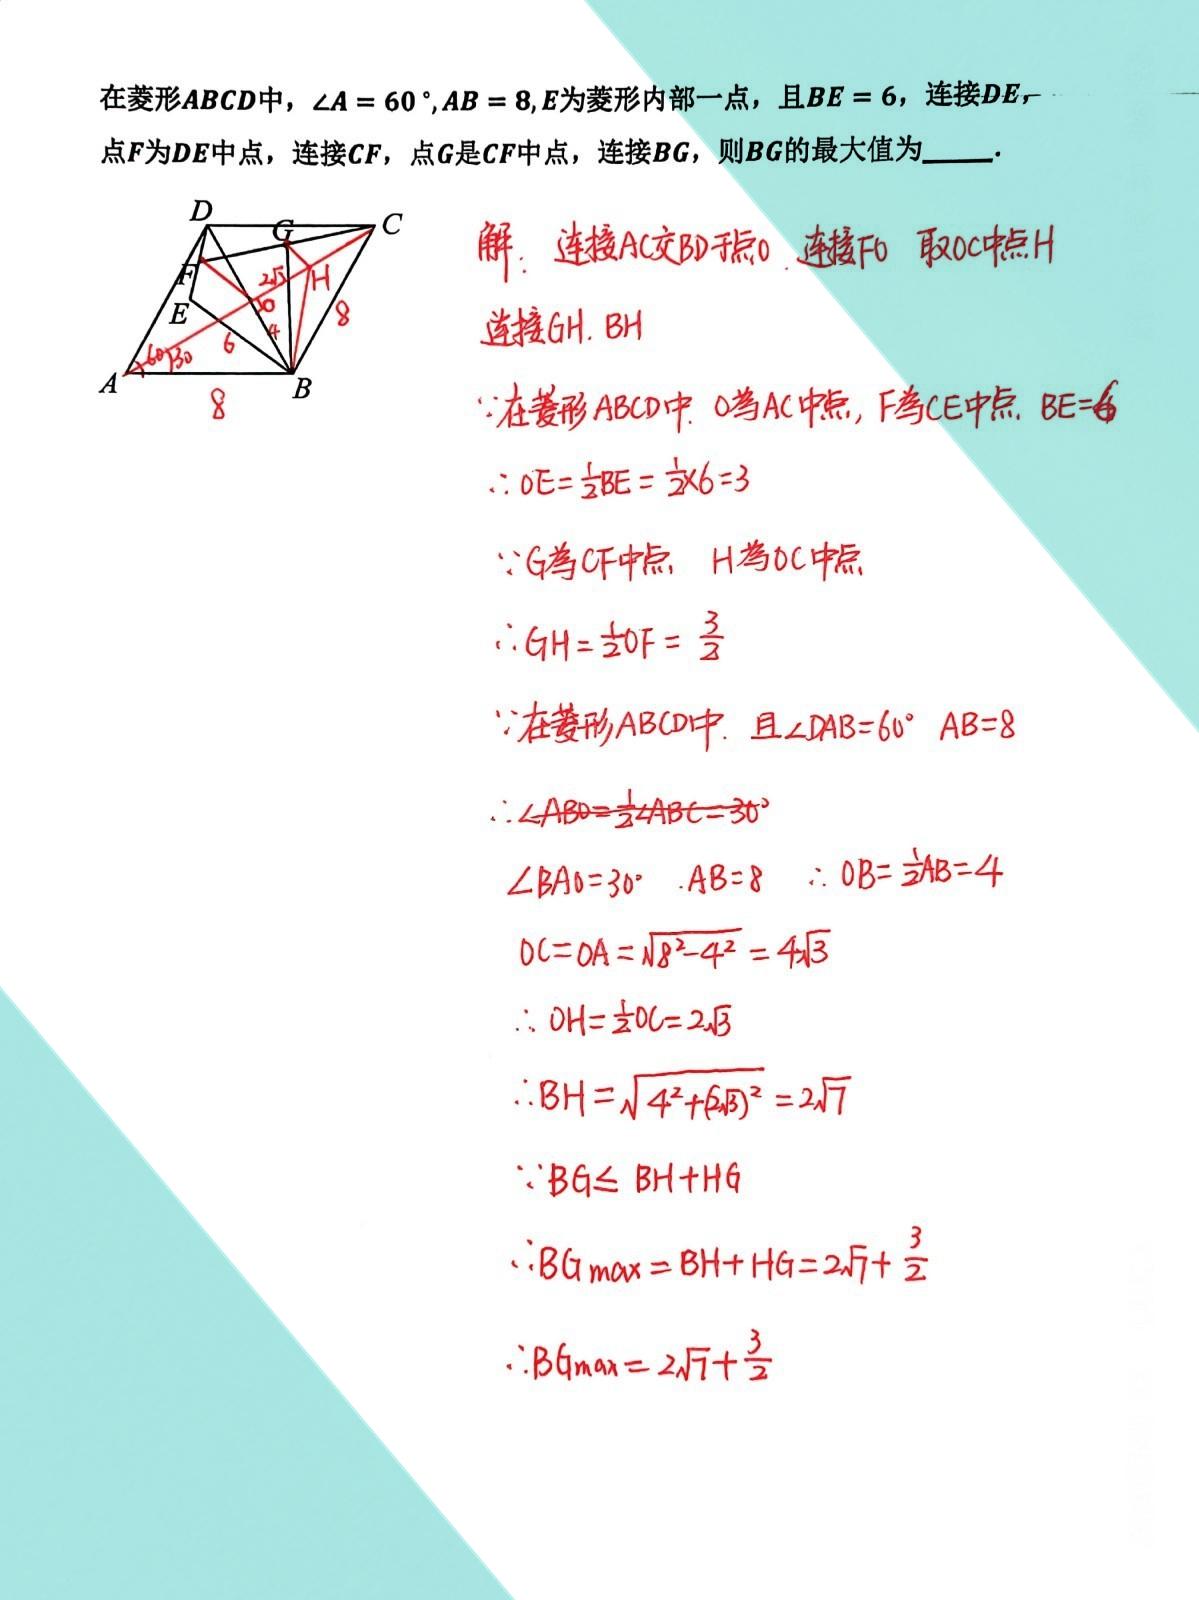 在菱形ABCD中，∠A = 60°, AB = 8, E为菱形内部一点，且BE = 6，连接DE，
点F为DE中点，连接CF，点G是CF中点，连接BG，则BG的最大值为_____.
D
G
C
F
2√3
H
E
O
8
6
4
60
30
A
B
8
解：连接AC交BD于点O．连接FO 取OC中点H
连接GH．BH
∵在菱形ABCD中．O為AC中点，F為CE中点．BE=6
∴OE=½BE=½×6=3
∵G為CF中点 H為OC中点
∴GH=½OF=3/2
∵在菱形ABCD中．且∠DAB=60° AB=8
∴∠ABO=½∠ABC=30°
∠BAO=30° .AB=8 ∴OB=½AB=4
OC=OA=√(8²-4²)=4√3
∴OH=½OC=2√3
∴BH=√(4²+(2√3)²)=2√7
∵BG≤BH+HG
∴BGmax=BH+HG=2√7+3/2
∴BGmax=2√7+3/2